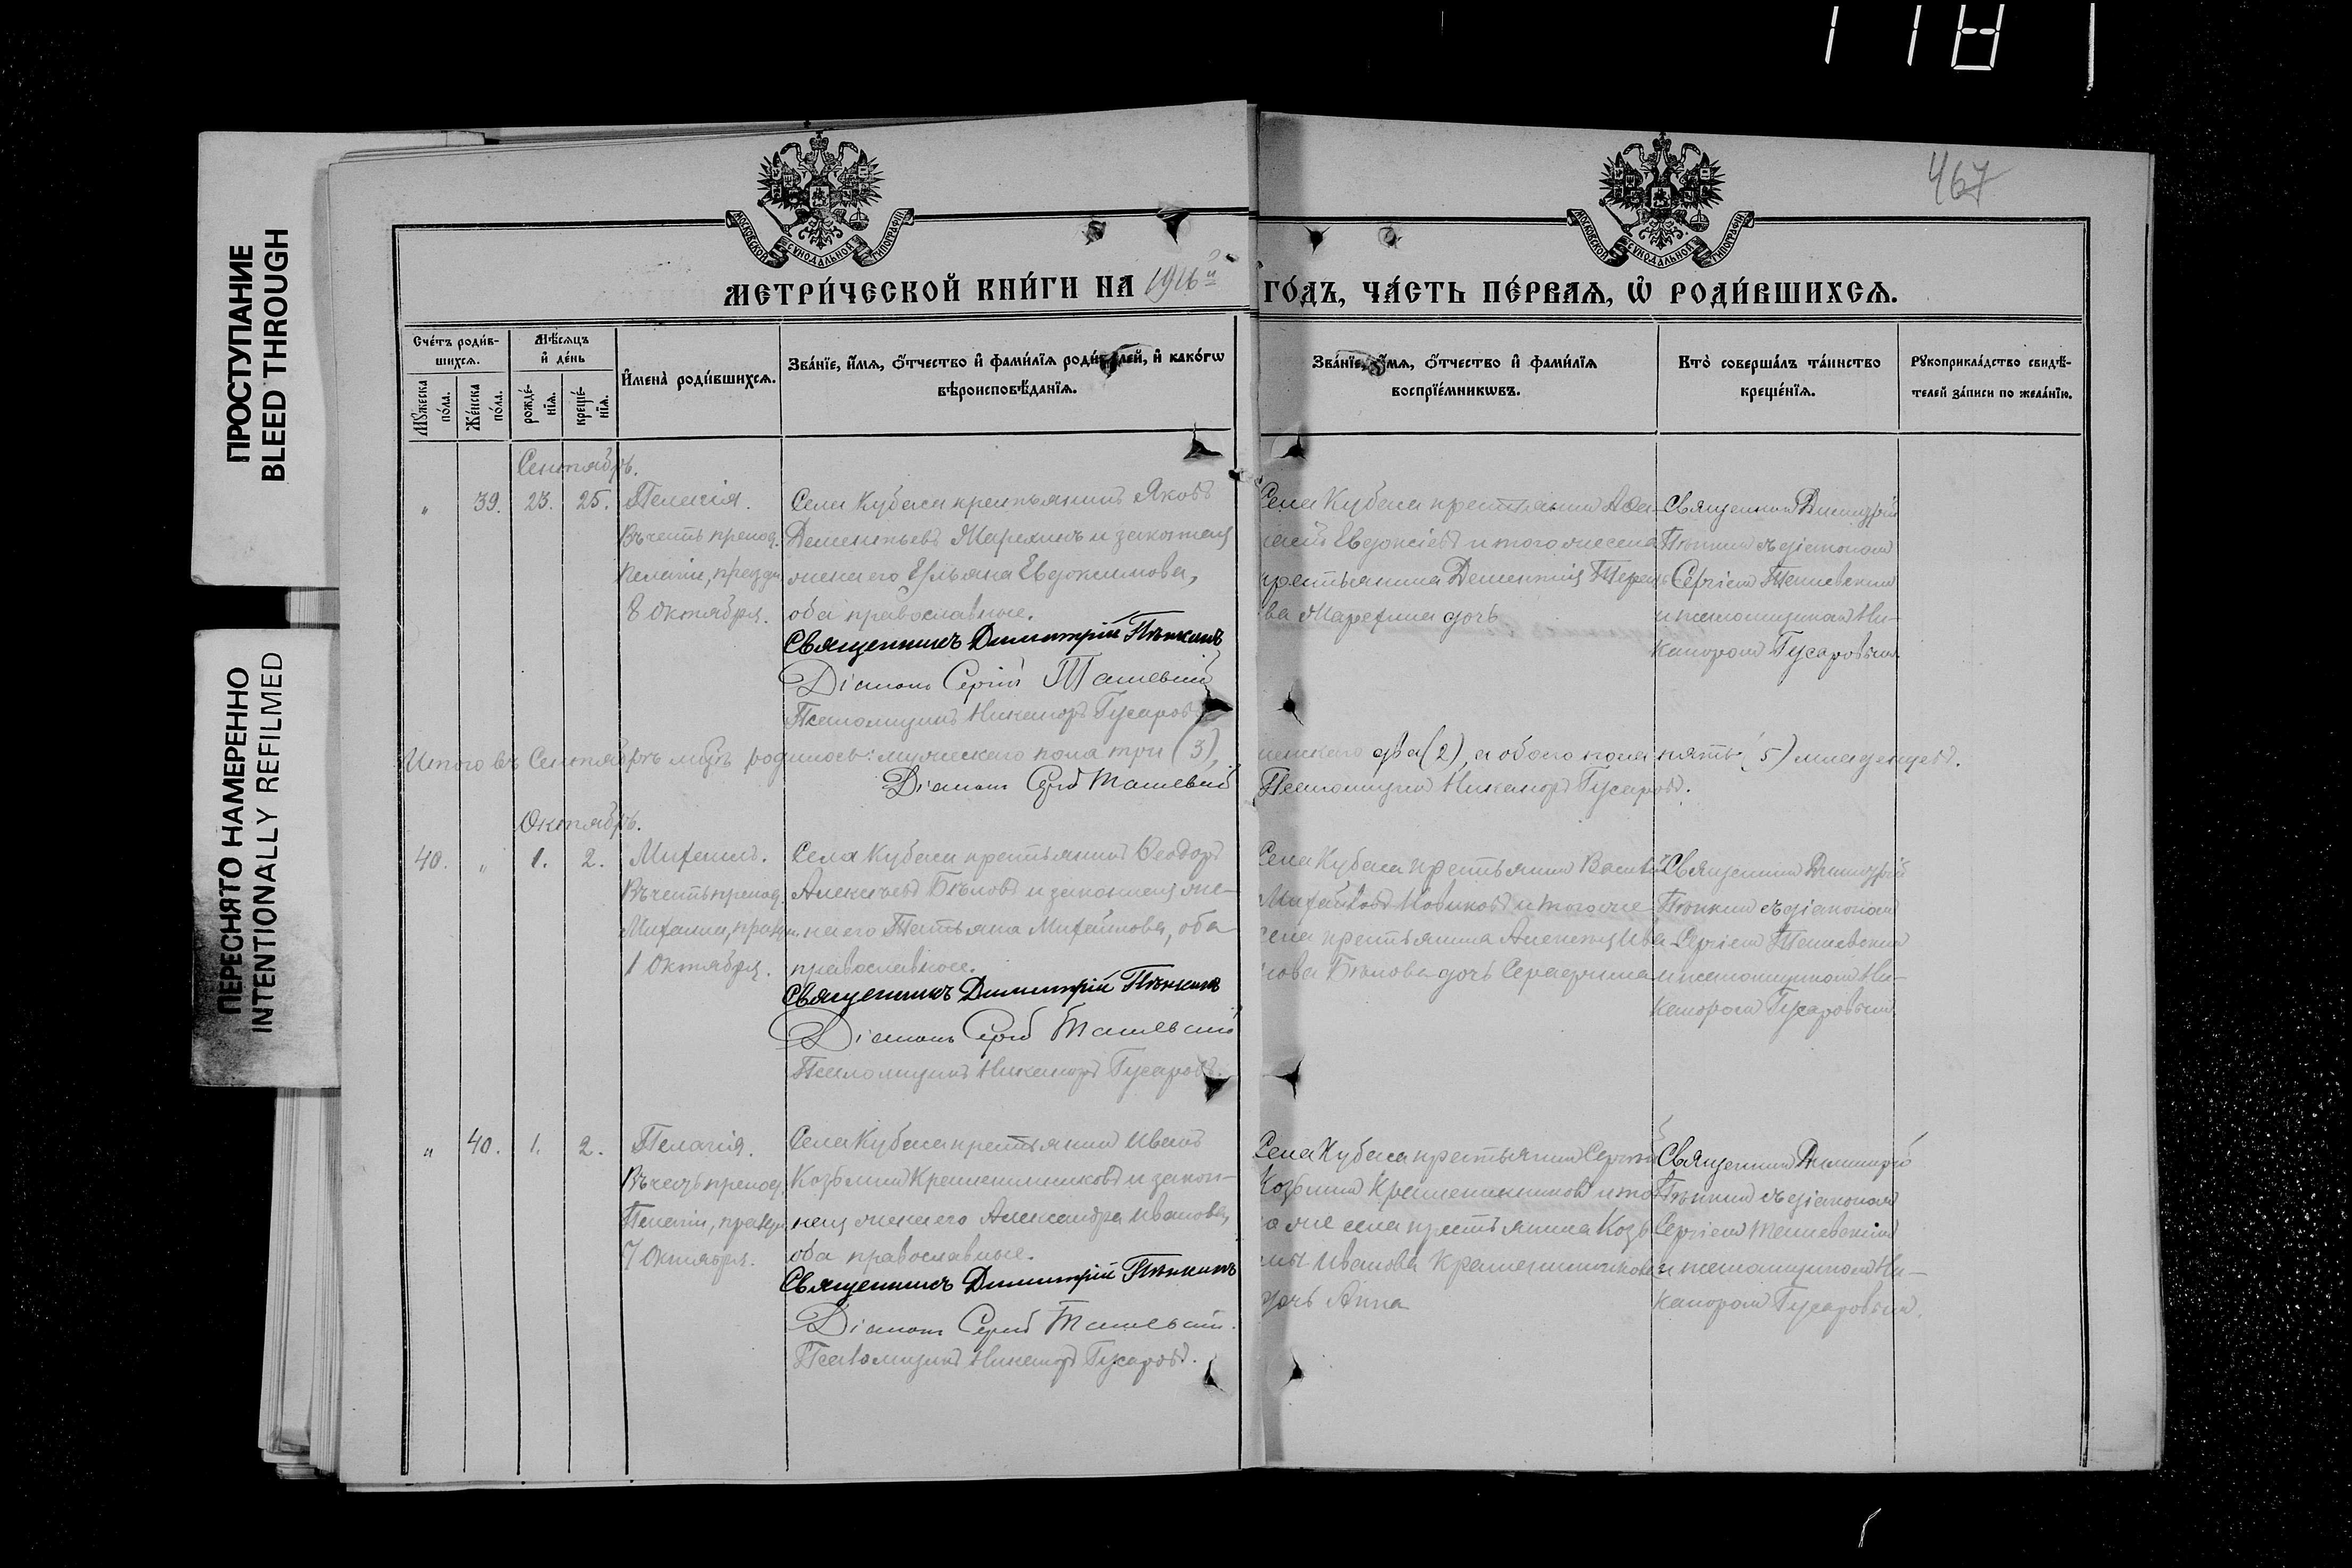 1181
ПРОСТУПАНИЕ
BLEED THROUGH
ПЕРЕСНЯТО НАМЕРЕННО
INTENTIONALLY REFILMED
467
МОСКОВСКОЙ СУНОДАЛЬНОЙ ТИПОГРАФІИ
МОСКОВСКОЙ СУНОДАЛЬНОЙ ТИПОГРАФІИ
МЕТРИ́ЧЕСКОЙ КНИ́ГИ НА 1916й ГО́ДЪ, ЧА́СТЬ ПЕ́РВАѦ, Ѡ РОДИ́ВШИХСѦ.
Сче́тъ роди́в-
шихсѧ.
Мѣ́сѧцъ
и де́нь
Мꙋ́жеска
по́ла.
Же́нска
по́ла.
рожде́-
нїѧ.
креще́-
нїѧ.
Имена̀ роди́вшихсѧ.
Зва́нїе, и́мѧ, о́тчество и фами́лїѧ роди́телей, и како́гѡ
вѣроисповѣ́данїѧ.
Зва́нїе, и́мѧ, о́тчество и фами́лїѧ
воспрїе́мникѡвъ.
Кто̀ соверша́лъ та́инство
креще́нїѧ.
Рꙋкоприкла́дство свидѣ́-
телей за́писи по жела́нїю.
Сентябрь.
" 39. 23. 25. Пелагія.
Въ честь препод.
Пелагіи, праздн.
8 Октября.
Села Кубаса крестьянинъ Яковъ
Дементьевъ Марехинъ и законная
жена его Ульяна Евдокимова,
оба православные.
Священникъ Димитрій Пѣнкинъ
Діаконъ Сергій
Псаломщикъ Никаноръ Гусаровъ
Села Кубаса крестьянинъ
Евдокіевъ и того же села
крестьянина Дементія
дочь
Священникъ Димитрій
Пѣнкинъ съ діакономъ
Сергіемъ
и псаломщикомъ Ни-
каноромъ Гусаровымъ
Итого въ Сентябрѣ мцѣ родилось: мужескаго пола три (3), женскаго два (2), а обоего пола пять (5) младенцевъ.
Діаконъ Сергій
Псаломщикъ Никаноръ Гусаровъ.
Октябрь.
40. " 1. 2. Михаилъ.
Въ честь препод.
Михаила, праздн.
1 Октября.
Села Кубаса крестьянинъ Ѳеодоръ
Алексѣевъ Бѣловъ и законная же-
на его Татьяна Михайлова, оба
православные.
Священникъ Димитрій Пѣнкинъ
Діаконъ Сергій
Псаломщикъ Никаноръ Гусаровъ.
Села Кубаса крестьянинъ Василій
Михайловъ Новиковъ и того же
села крестьянина Алексѣя Ива
нова Бѣлова дочь Серафима
Священникъ Димитрій
Пѣнкинъ съ діакономъ
Сергіемъ
и псаломщикомъ Ни-
каноромъ Гусаровымъ
" 40. 1. 2. Пелагія.
Въ честь препод.
Пелагіи, праздн.
7 Октября.
Села Кубаса крестьянинъ Иванъ
Козьминъ Крашенинниковъ и закон-
ная жена его Александра Иванова,
оба православные.
Священникъ Димитрій Пѣнкинъ
Діаконъ Сергій
Псаломщикъ Никаноръ Гусаровъ.
Села Кубаса крестьянинъ Сергій
Козьминъ Крашенинниковъ и то
го же села крестьянина Козь
мы Иванова Крашенинникова
дочь Анна
Священникъ Димитрій
Пѣнкинъ съ діакономъ
Сергіемъ
и псаломщикомъ Ни-
каноромъ Гусаровымъ.